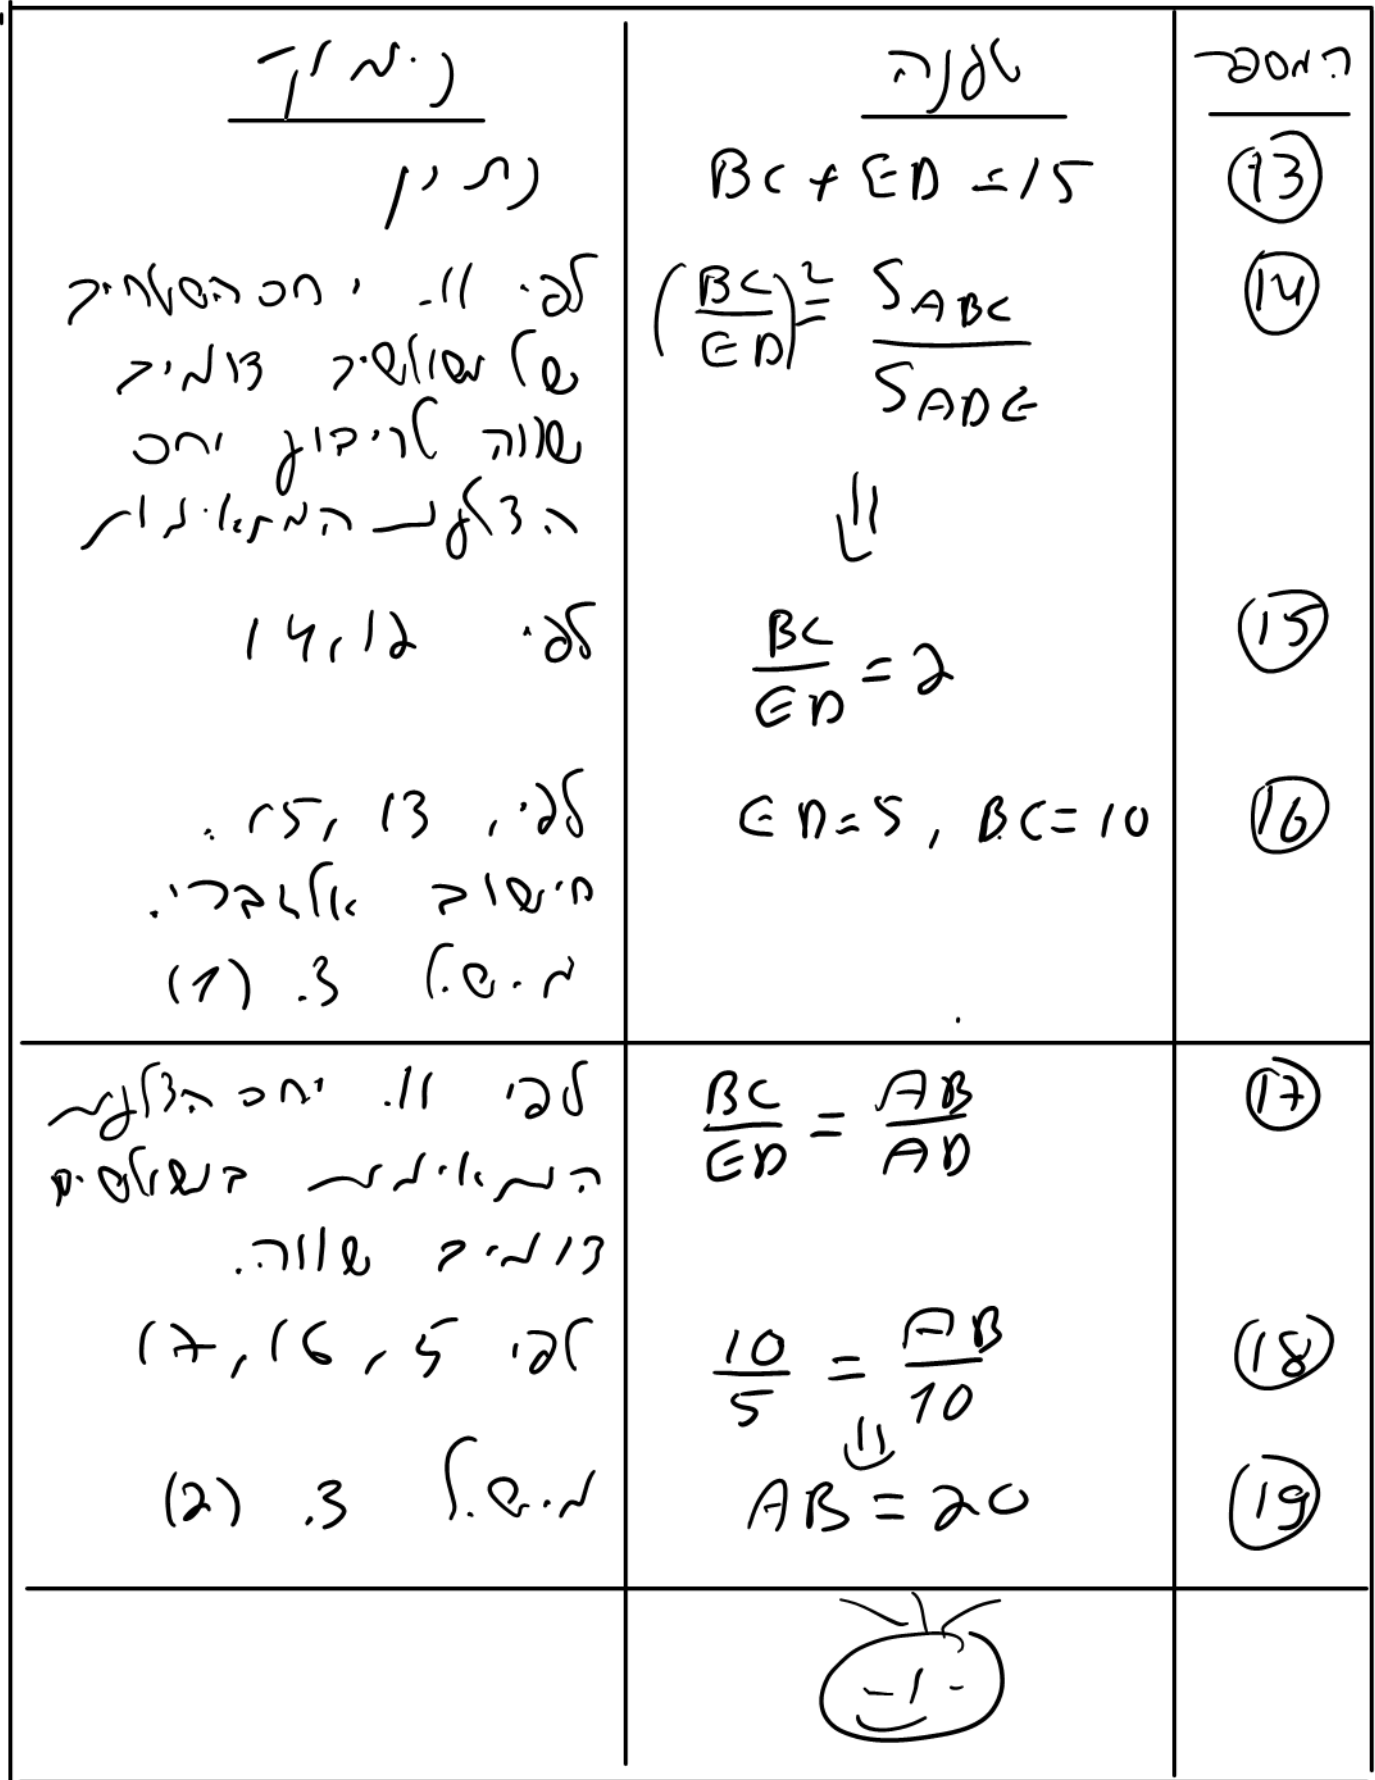 המספר טענה נימוק
(13) BC + ED = 15 נתון
(14) (BC/ED)² = S_ABC / S_ADE לפי 11. יחס השטחים
של משולשים דומים
שווה לריבוע יחס
הצלעות המתאימות
⇓
(15) BC/ED = 2 לפי 14, 12
(16) ED = 5, BC = 10 לפי, 13, 15.
חישוב אלגברי.
מ.ש.ל ג. (1)
(17) BC/ED = AB/AD לפי 11. יחס הצלעות
המתאימות במשולשים
דומים שווה.
(18) 10/5 = AB/10 לפי 5, 16, 17
⇓
(19) AB = 20 מ.ש.ל ג. (2)